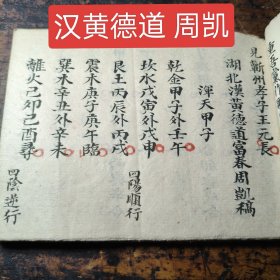 汉黄德道 周凯
蘄州老子王元長
湖北漢黃德道富春周凱稿
渾天甲子
乾金甲子外壬午
坎水戊寅外戊申
艮土丙辰外丙戌
四陽順行
震木庚子庚午臨
巽木辛丑外辛未
離火己卯己酉尋
四陰逆行